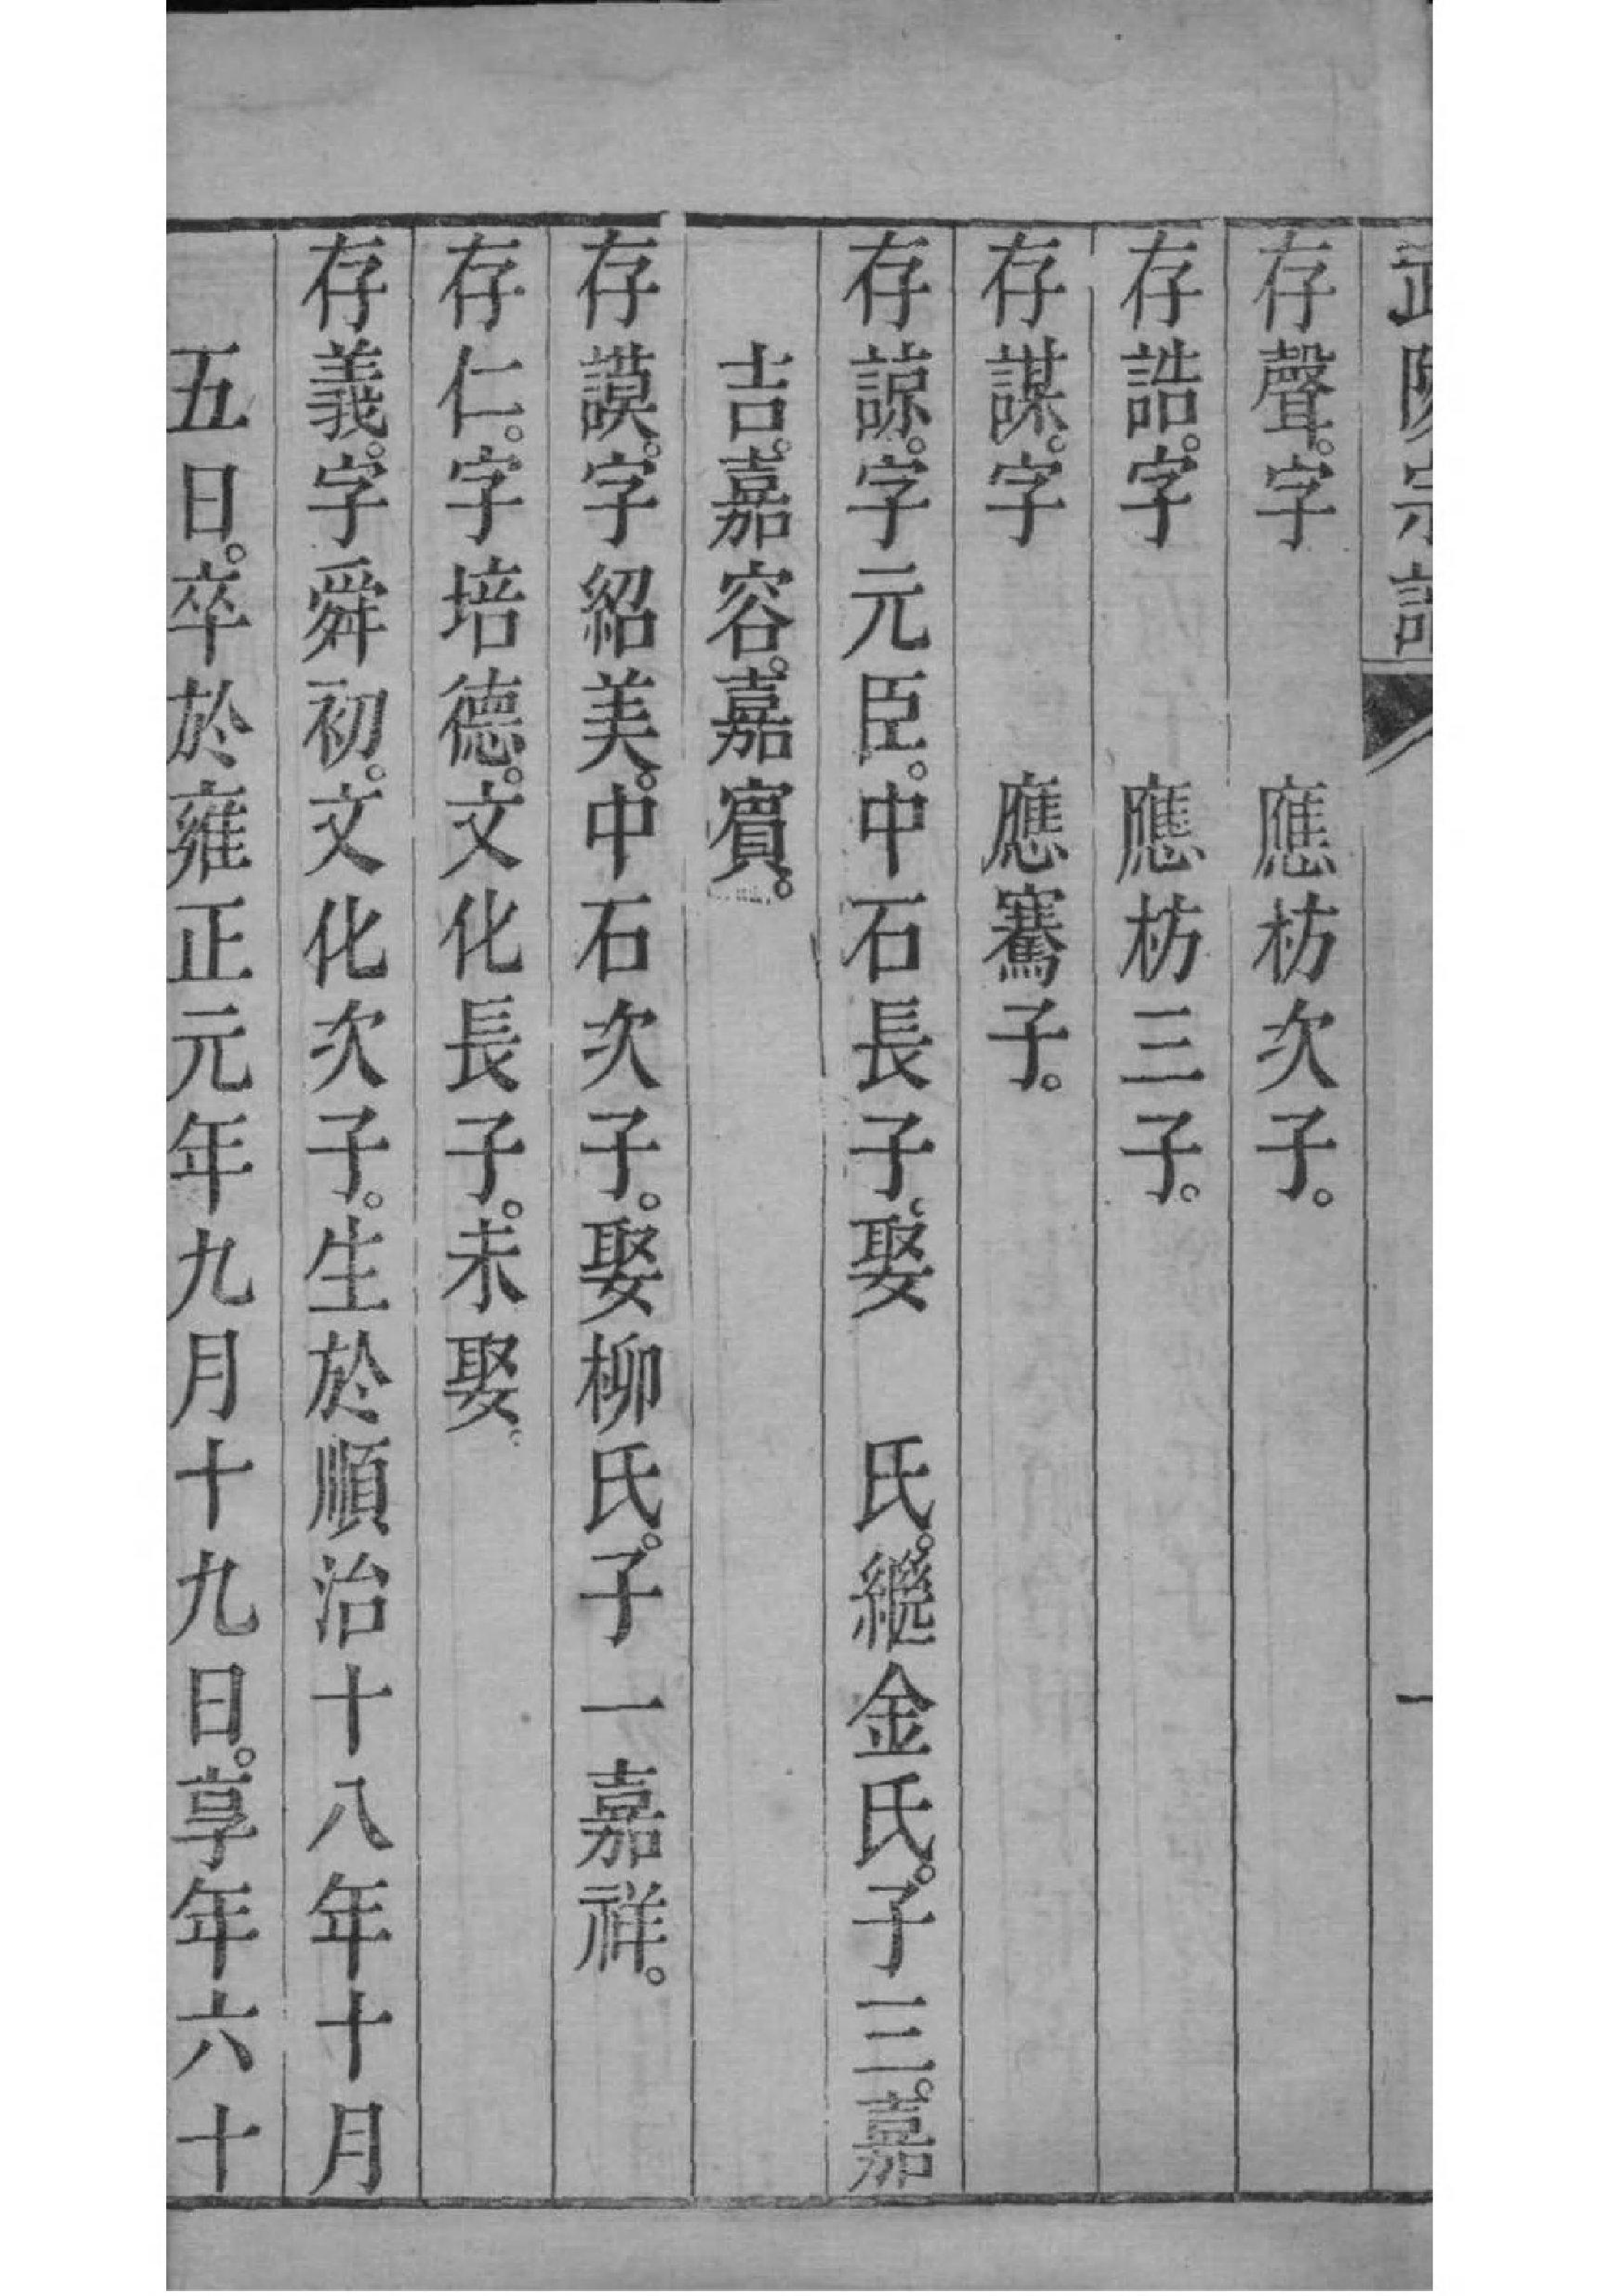 武陵宗譜 一
存聲。字 應枋次子。
存誥。字 應枋三子。
存謀。字 應騫子。
存諒。字元臣。中石長子。娶 氏。繼金氏。子三。嘉
吉。嘉容。嘉賓。
存謨。字紹美。中石次子。娶柳氏。子一嘉祥。
存仁。字培德。文化長子。未娶。
存義。字舜初。文化次子。生於順治十八年十月
五日。卒於雍正元年九月十九日。享年六十